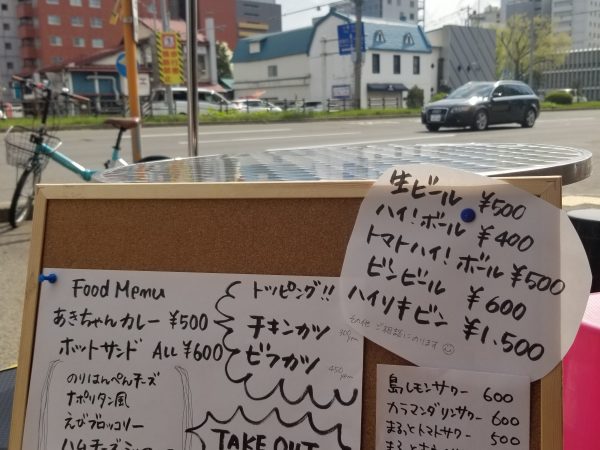 生ビール ¥500
ハイ!ボール ¥400
トマトハイ!ボール ¥500
ビンビール ¥600
ハイリキビン ¥1,500
その他 ご相談にのります
Food Menu
あきちゃんカレー ¥500
ホットサンド ALL ¥600
のりはんぺんチーズ
ナポリタン風
えびブロッコリー
トッピング!!
チキンカツ
300yen
ビフカツ
450yen
TAKE OUT
島レモンサワー 600
カラマンダリンサワー 600
まるっとトマトサワー 500